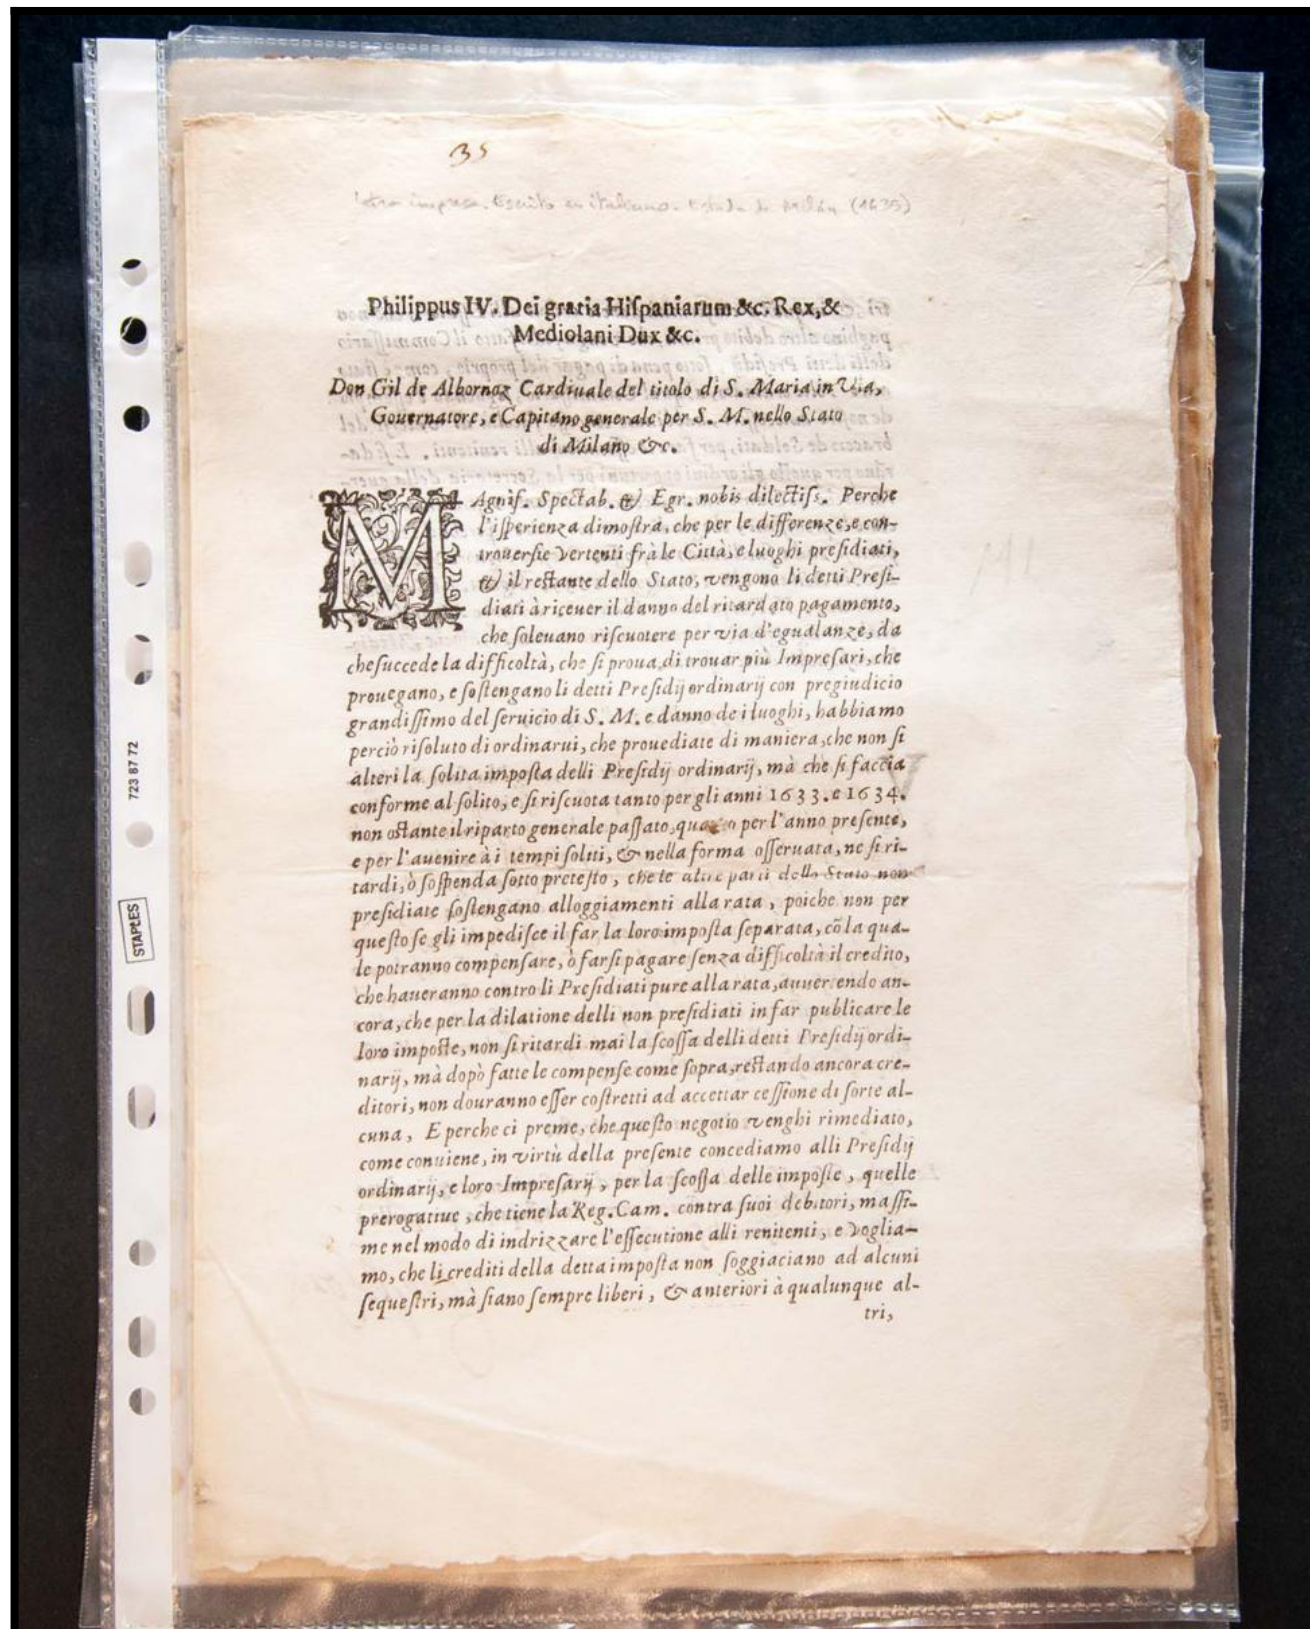 35
letra impresa. Escrito en italiano. Estado de Milán (1635)
Philippus IV. Dei gratia Hiſpaniarum &c. Rex, &
Mediolani Dux &c.
Don Gil de Albornoz Cardinale del titolo di S. Maria in Via,
Gouernatore, e Capitano generale per S. M. nello Stato
di Milano &c.
MAgniſ. Spectab. & Egr. nobis dilectiſs. Perche
l'iſperienza dimoſtra, che per le differenze, e con-
trouerſie vertenti frà le Città, e luoghi preſidiati,
& il reſtante dello Stato, vengono li detti Preſi-
diati à riceuer il danno del ritardato pagamento,
che ſoleuano riſcuotere per via d'egualanze, da
che ſuccede la difficoltà, che ſi proua di trouar più Impreſari, che
prouegano, e ſoſtengano li detti Preſidij ordinarij con pregiudicio
grandiſſimo del ſeruicio di S. M. e danno de i luoghi, habbiamo
perciò riſoluto di ordinarui, che prouediate di maniera, che non ſi
alteri la ſolita impoſta delli Preſidij ordinarij, mà che ſi faccia
conforme al ſolito, e ſi riſcuota tanto per gli anni 1633. e 1634.
non oſtante il riparto generale paſſato, quanto per l'anno preſente,
e per l'auenire à i tempi ſoliti, & nella forma oſſeruata, ne ſi ri-
tardi, ò ſoſpenda ſotto preteſto, che le altre parti dello Stato non
preſidiate ſoſtengano alloggiamenti alla rata, poiche non per
queſto ſe gli impediſce il far la loro impoſta ſeparata, cō la qua-
le potranno compenſare, ò farſi pagare ſenza difficoltà il credito,
che haueranno contro li Preſidiati pure alla rata, auuertendo an-
cora, che per la dilatione delli non preſidiati in far publicare le
loro impoſte, non ſi ritardi mai la ſcoſſa delli detti Preſidij ordi-
narij, mà dopò fatte le compenſe come ſopra, reſtando ancora cre-
ditori, non douranno eſſer coſtretti ad accettar ceſſione di ſorte al-
cuna, E perche ci preme, che queſto negotio venghi rimediato,
come conuiene, in virtù della preſente concediamo alli Preſidij
ordinarij, e loro Impreſarij, per la ſcoſſa delle impoſte, quelle
prerogatiue, che tiene la Reg. Cam. contra ſuoi debitori, maſſi-
me nel modo di indrizzare l'eſſecutione alli renitenti, e voglia-
mo, che li crediti della detta impoſta non ſoggiaciano ad alcuni
ſequeſtri, mà ſiano ſempre liberi, & anteriori à qualunque al-
tri,
723 87 72
STAPLES